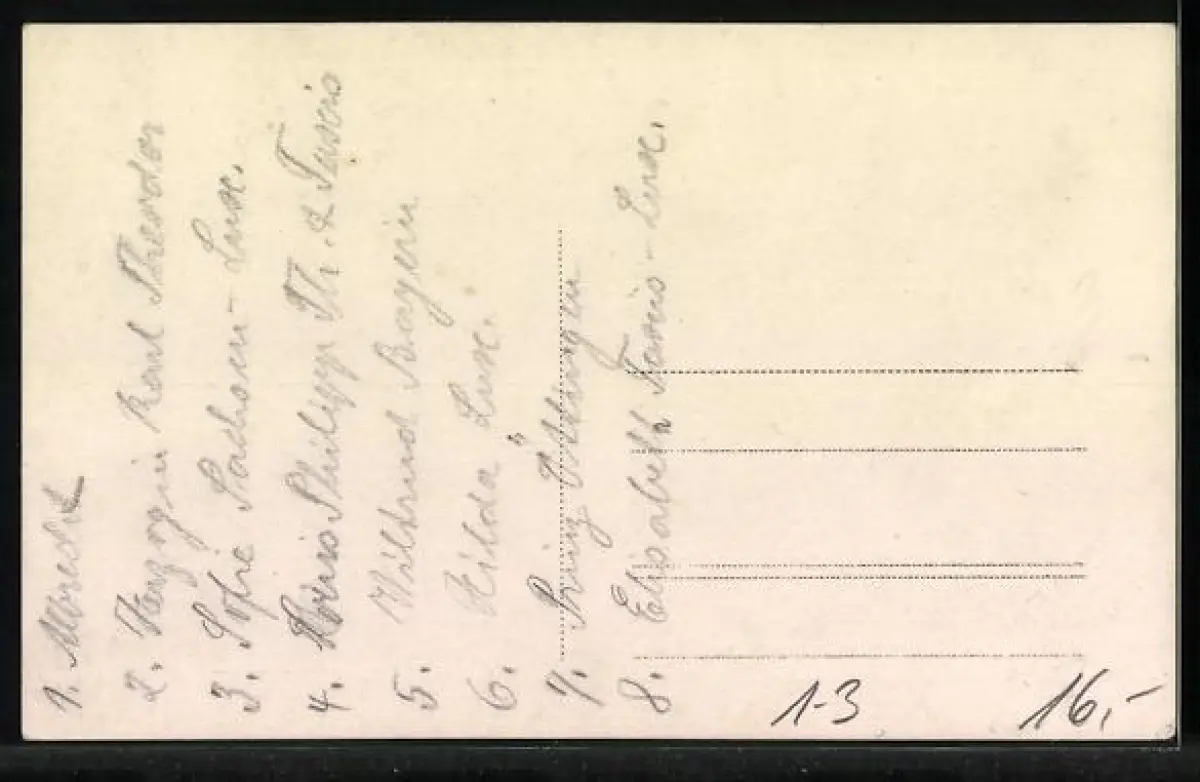 1. Albrecht
2. Herzogin Karl Theodor
3. Sofie Sachsen - Lux.
4. Philipp Th. & Taxis
5. Wiltrud Bayern
6. Hilda Lux.
7. Prinz Öttingen
8. Elisabeth Taxis - Lux.
1-3
16,-